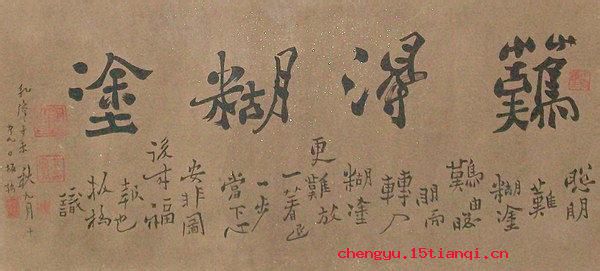 難得糊塗
聰明
難
糊塗
難由聰
明而
轉入
糊塗
更難放
一著退
一步
當下心
安非圖
後來福
報也
板橋
識
乾隆辛未秋九月十
chengyu.15tianqi.cn